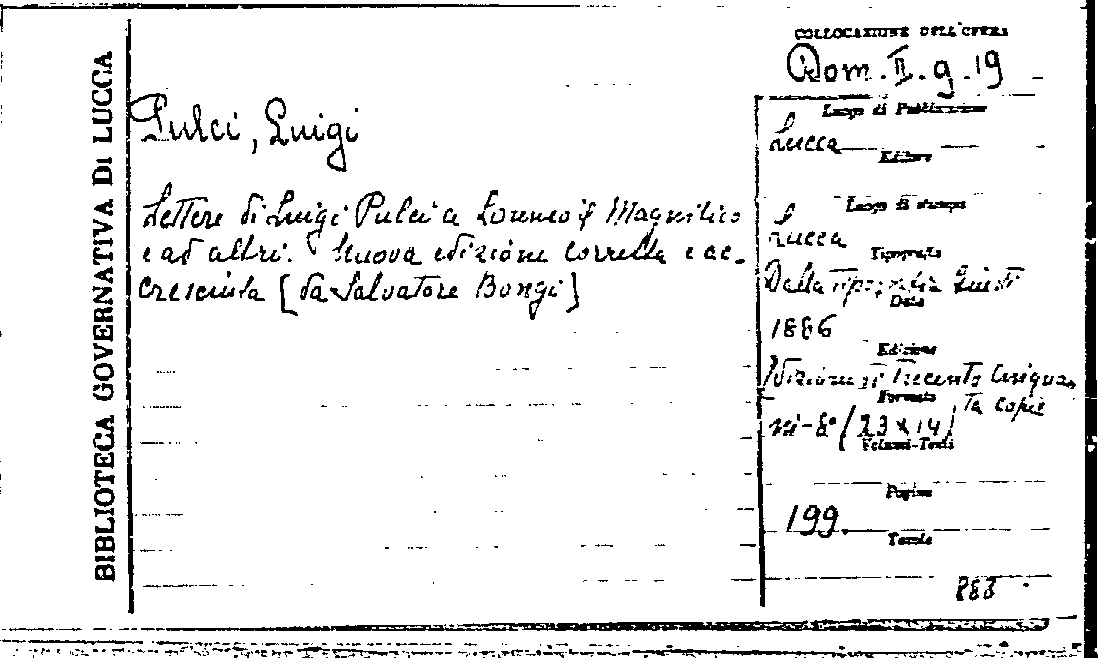 BIBLIOTECA GOVERNATIVA DI LUCCA
Pulci, Luigi
Lettere di Luigi Pulci a Lorenzo il Magnifico
e ad altri. Nuova edizione corretta e ac-
cresciuta [da Salvatore Bongi]
COLLOCAZIONE DELL'OPERA
Dom. II. g. 19
Luogo di Pubblicazione
Lucca
Editore
Luogo di stampa
Lucca
Tipografia
Dalla Tipografia Giusti
Data
1886
Edizione
Edizione di Trecento Cinquan
Formato
ta copie
in-8° (23 x 14)
Volumi-Tomi
Pagine
199.
Tavole